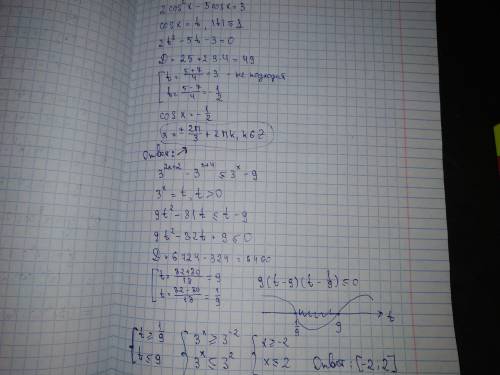 2cos²x - 5cosx = 3
cosx = t, |t| ≤ 1
2t² - 5t - 3 = 0
D = 25 + 23·4 = 49
[ t = (5+7)/4 = 3 - не подходит
t = (5-7)/4 = -1/2
cosx = -1/2
x = ± 2π/3 + 2πk, k ∈ Z
Ответ: ↗
3^(2x+2) - 3^(x+4) ≤ 3^x - 9
3^x = t, t > 0
9t² - 81t ≤ t - 9
9t² - 82t + 9 ≤ 0
D = 6724 - 324 = 6400
[ t = (82+80)/18 = 9
t = (82-80)/18 = 1/9
9(t-9)(t-1/9) ≤ 0
1/9 9 t
{ t ≥ 1/9 { 3^x ≥ 3^(-2) { x ≥ -2
t ≤ 9 3^x ≤ 3² x ≤ 2 Ответ: [-2; 2]